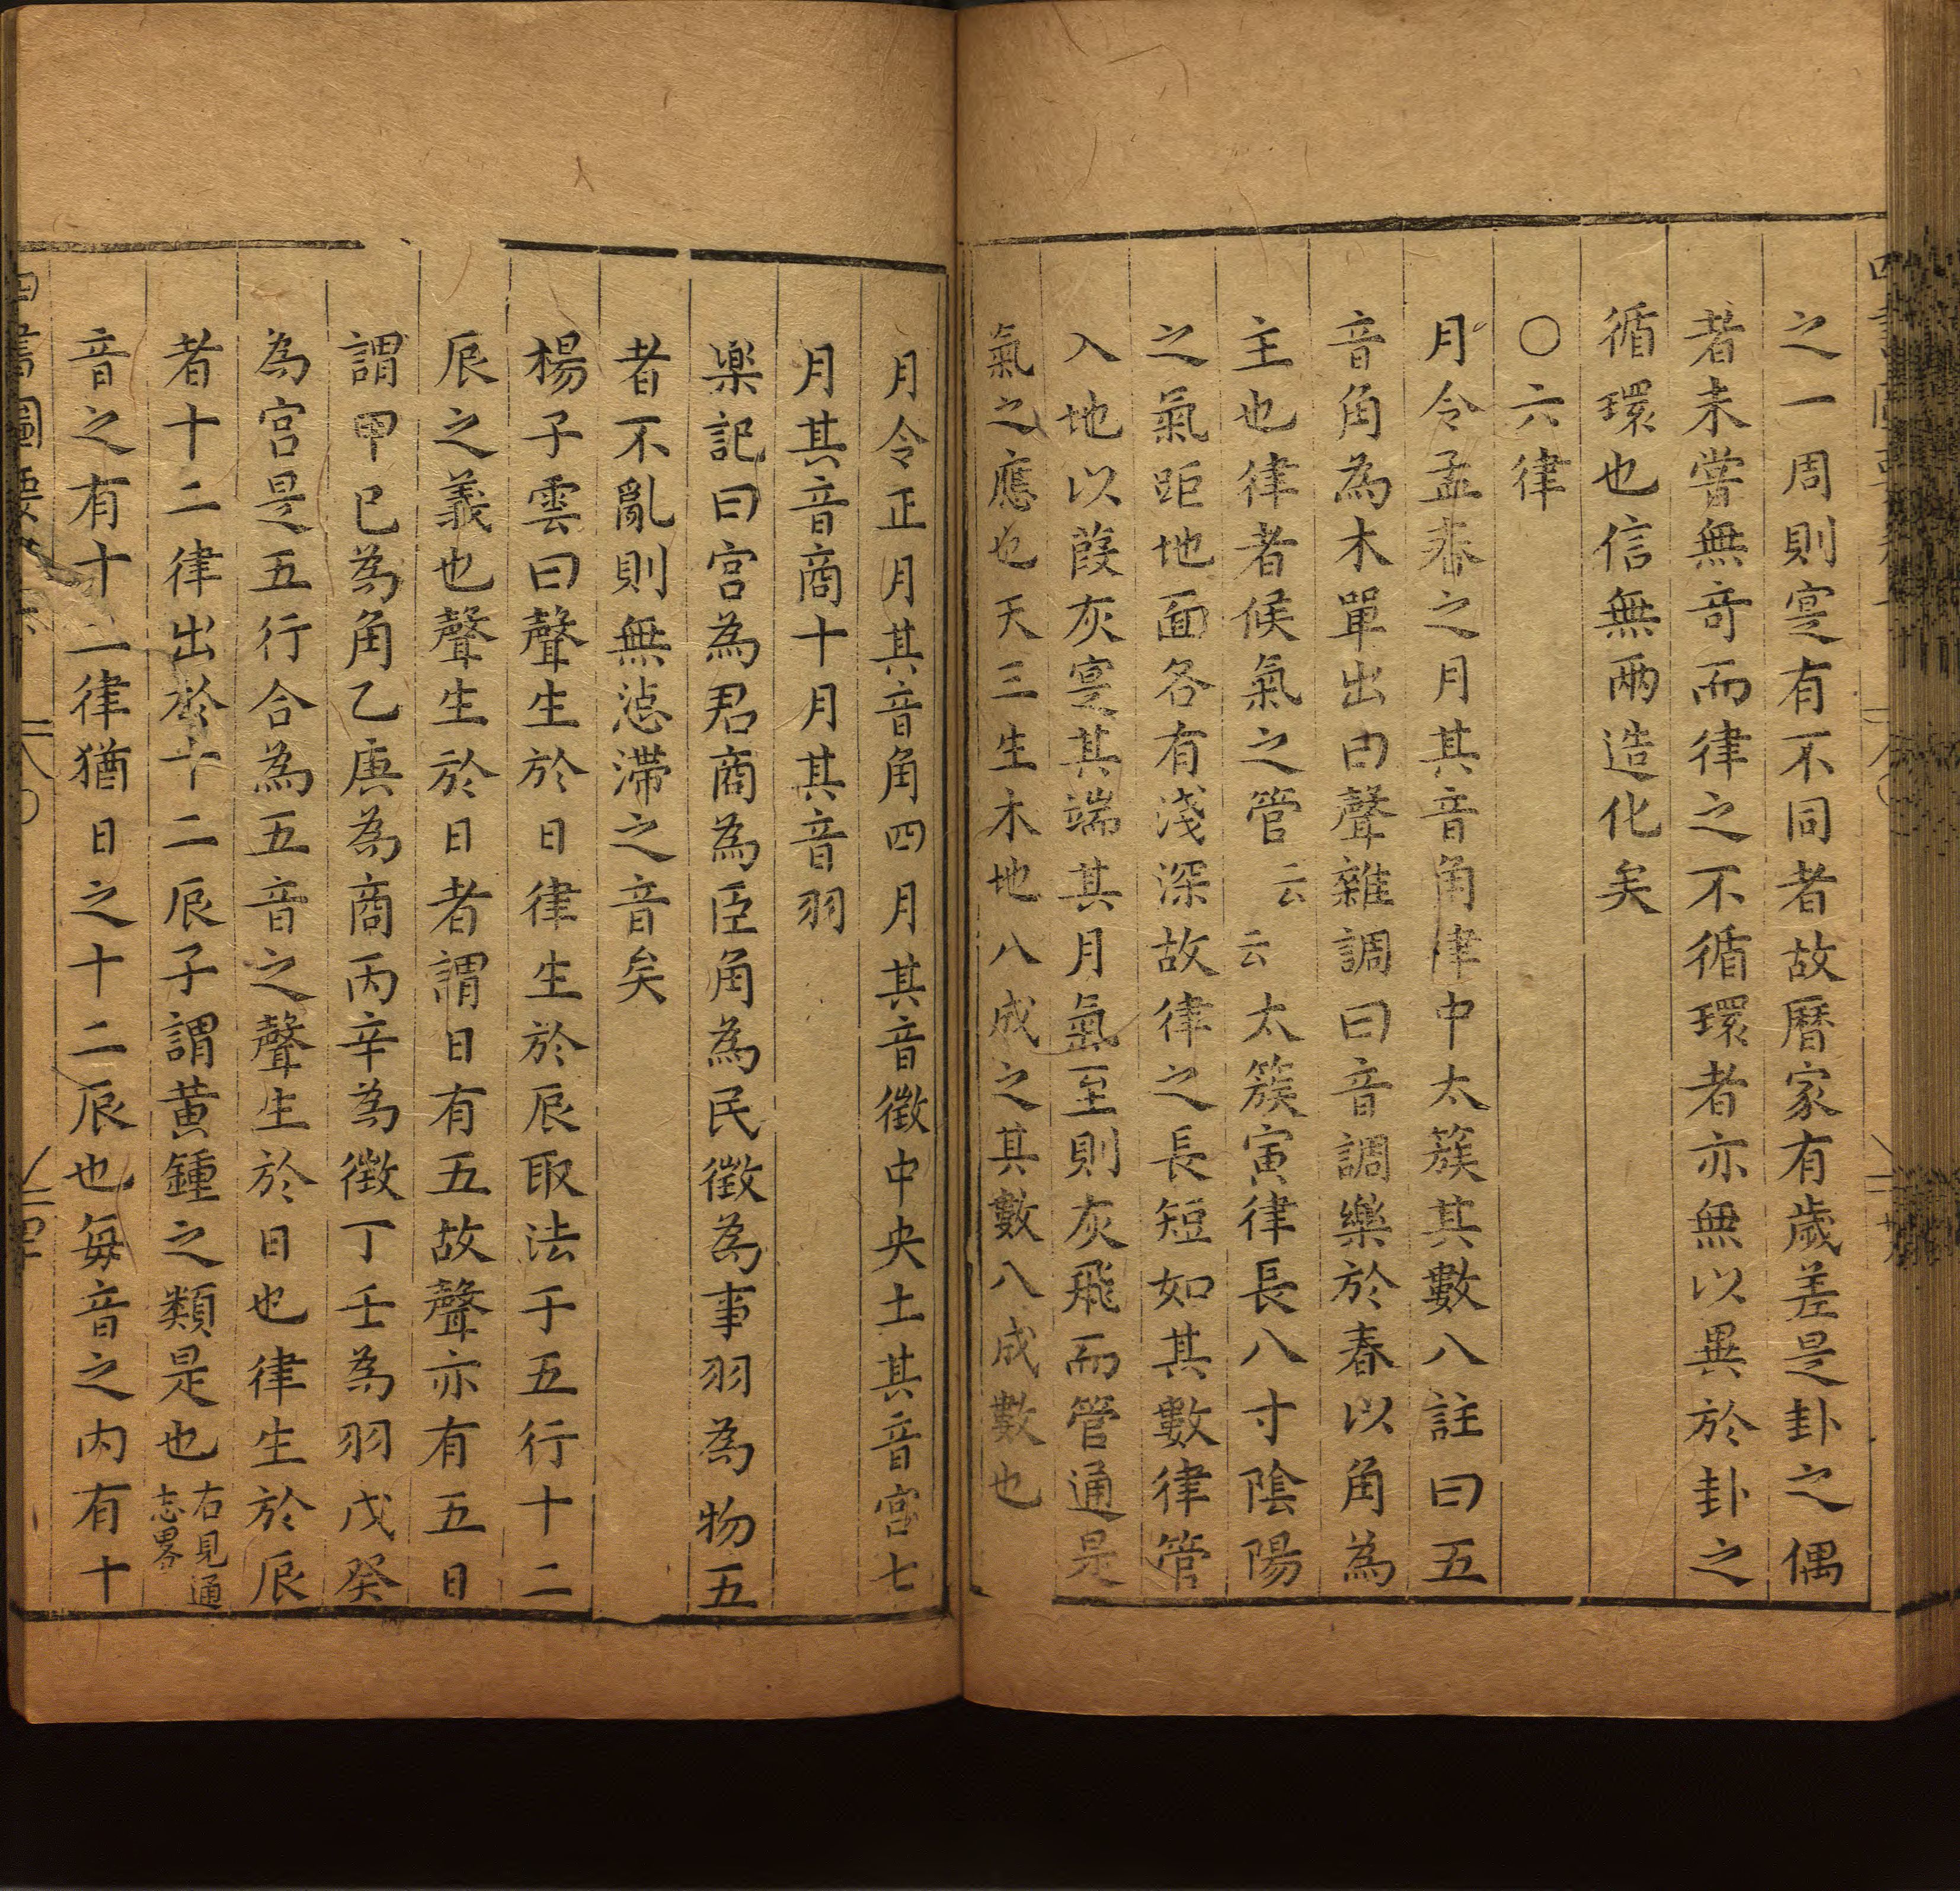 之一周則寔有不同者故曆家有歲差是卦之偶
者未嘗無奇而律之不循環者亦無以異於卦之
循環也信無兩造化矣
○六律
月令孟春之月其音角律中太簇其數八註曰五
音角為木單出曰聲雜調曰音調樂於春以角為
主也律者候氣之管云云太簇寅律長八寸陰陽
之氣距地面各有淺深故律之長短如其數律管
入地以葭灰寔其端其月氣至則灰飛而管通是
氣之應也天三生木地八成之其數八成數也
月令正月其音角四月其音徵中央土其音宮七
月其音商十月其音羽
楽記曰宮為君商為臣角為民徵為事羽為物五
者不亂則無惉滯之音矣
楊子雲曰聲生於日律生於辰取法于五行十二
辰之義也聲生於日者謂日有五故聲亦有五日
謂甲己為角乙庚為商丙辛為徵丁壬為羽戊癸
為宮是五行合為五音之聲生於日也律生於辰
者十二律出於十二辰子謂黃鍾之類是也右見通
志畧
音之有十二律猶日之十二辰也每音之內有十
四書圖要